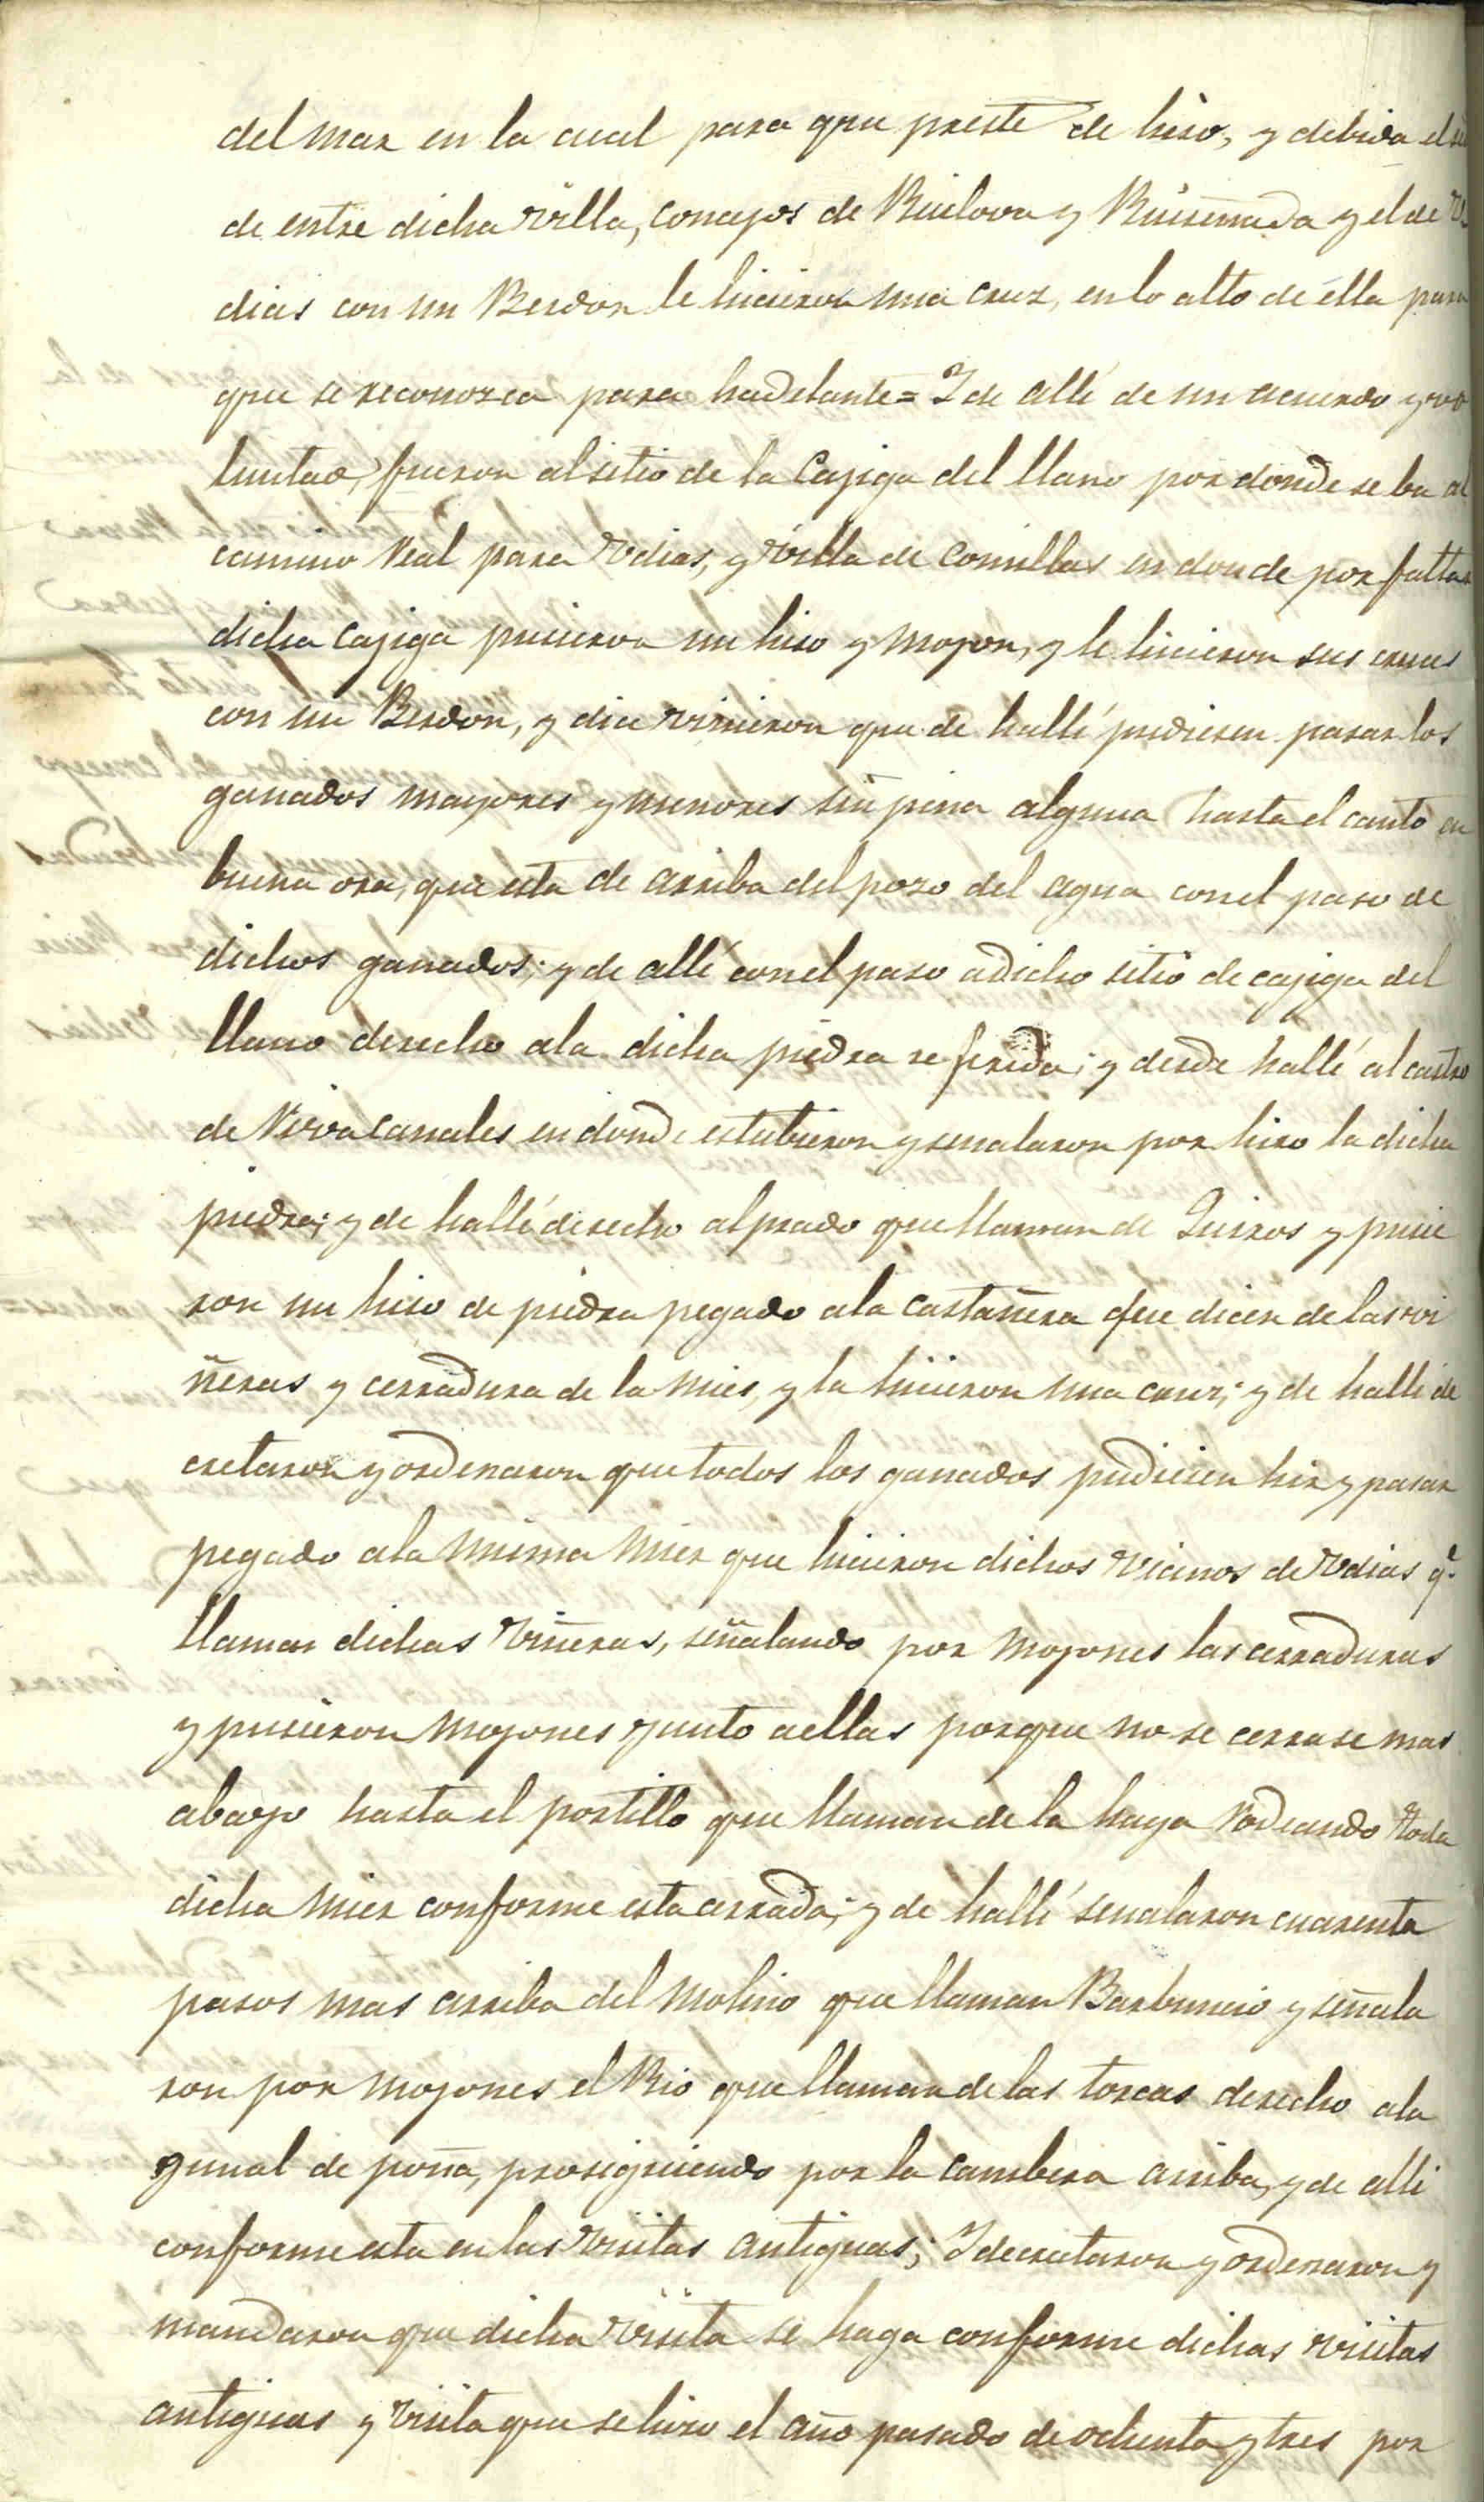 del mar en la cual para que preste de hiso, y debida el
de entre dicha villa, concejos de Ruilova y Ruiseñada y el de V
dias con un Berdon le hicieron una cruz, en lo alto de élla para
que se reconozca para hadelante = I de alli de un acuerdo y vo
luntad, fueron al sitio de la Cajiga del llano por donde se ba al
camino Real para Vdias, y villa de Comillas en donde por falta
dicha Cajiga pusieron un hiso y mojon, y le hicieron sus cruces
con un Berdon, y dice vinieron que de hallí pudiesen pasar los
ganados mayores y menores sin pena alguna hasta el canto en
buena ora, que esta de arriba del pozo del agua con el paso de
dichos ganados; y de allí con el paso adicho sitio de cajiga del
llano derecho ala dicha piedra referida; y desde hallí al castro
de Vervacanales en donde estubieron y senalaron por hiso la dicha
piedra; y de hallí derecho al prado que llaman de Quiros y pusie
ron un hiso de piedra pegado ala castañera que dicen de las vi
ñeras y cerradura de la mies, y la hicieron una cruz; y de hallí de
cretaron y ordenaron que todos los ganados pudiesen hir y pasar
pegado ala misma mies que hicieron dichos vecinos de Vdias q.
llaman dichas viñeras, señalando por mojones las cerraduras
y pusieron mojones junto aellas porque no se cerrase mas
abajo hasta el portillo que llaman de la haya rodeando toda
dicha mier conforme esta cerrada; y de hallí senalaron cuarenta
pasos mas arriba del molino que llaman Barbuncio y señala
ron por mojones el Rio que llaman de las torcas derecho ala
gunal de poña, prosiguiendo por la cambera arriba, y de alli
conforme esta en las visitas antiguas; I decretaron y ordenaron y
mandaron que dicha visita se haga conforme dichas visitas
antiguas y visita que se hizo el año pasado de ochenta y tres por